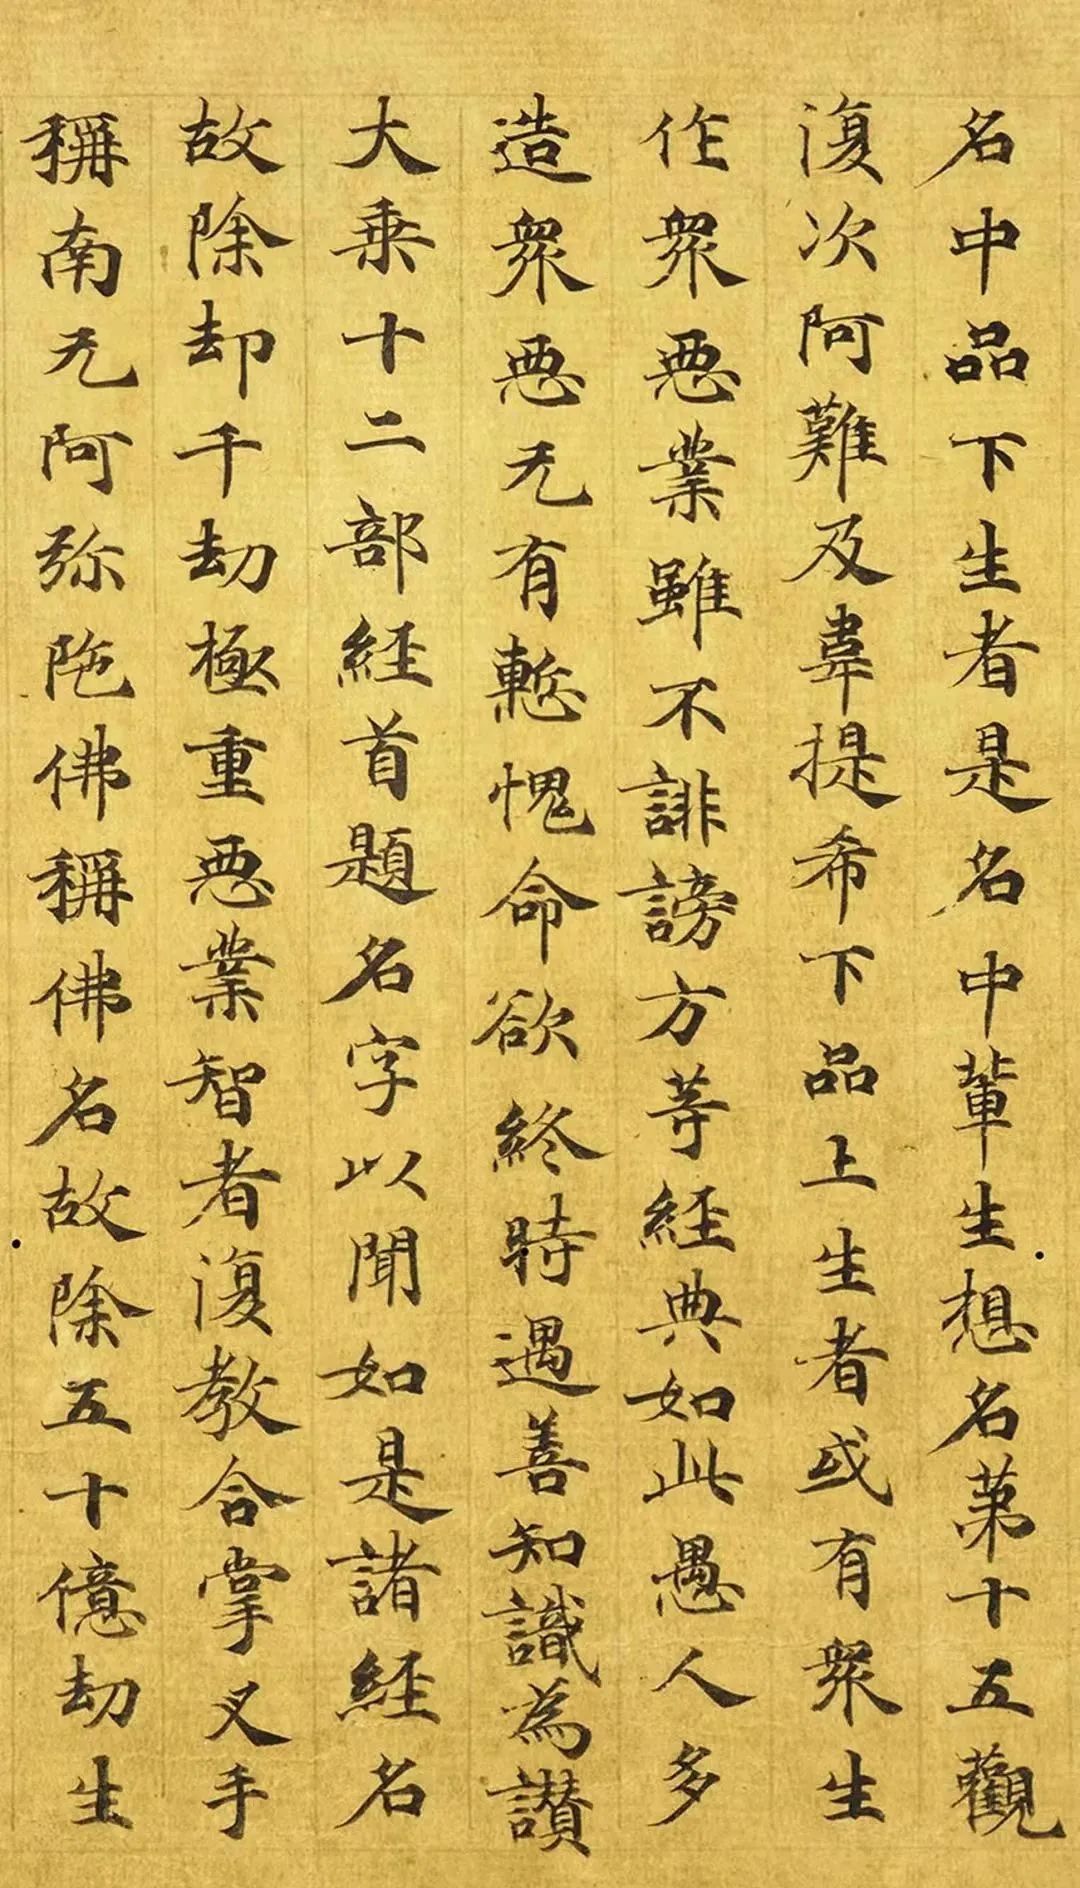 名中品下生者是名中輩生想名苐十五觀
復次阿難及韋提希下品上生者或有衆生
作衆惡業雖不誹謗方等經典如此愚人多
造衆惡无有慙愧命欲終時遇善知識為讃
大乗十二部經首題名字以聞如是諸經名
故除却千劫極重惡業智者復教合掌叉手
稱南无阿弥陁佛稱佛名故除五十億劫生